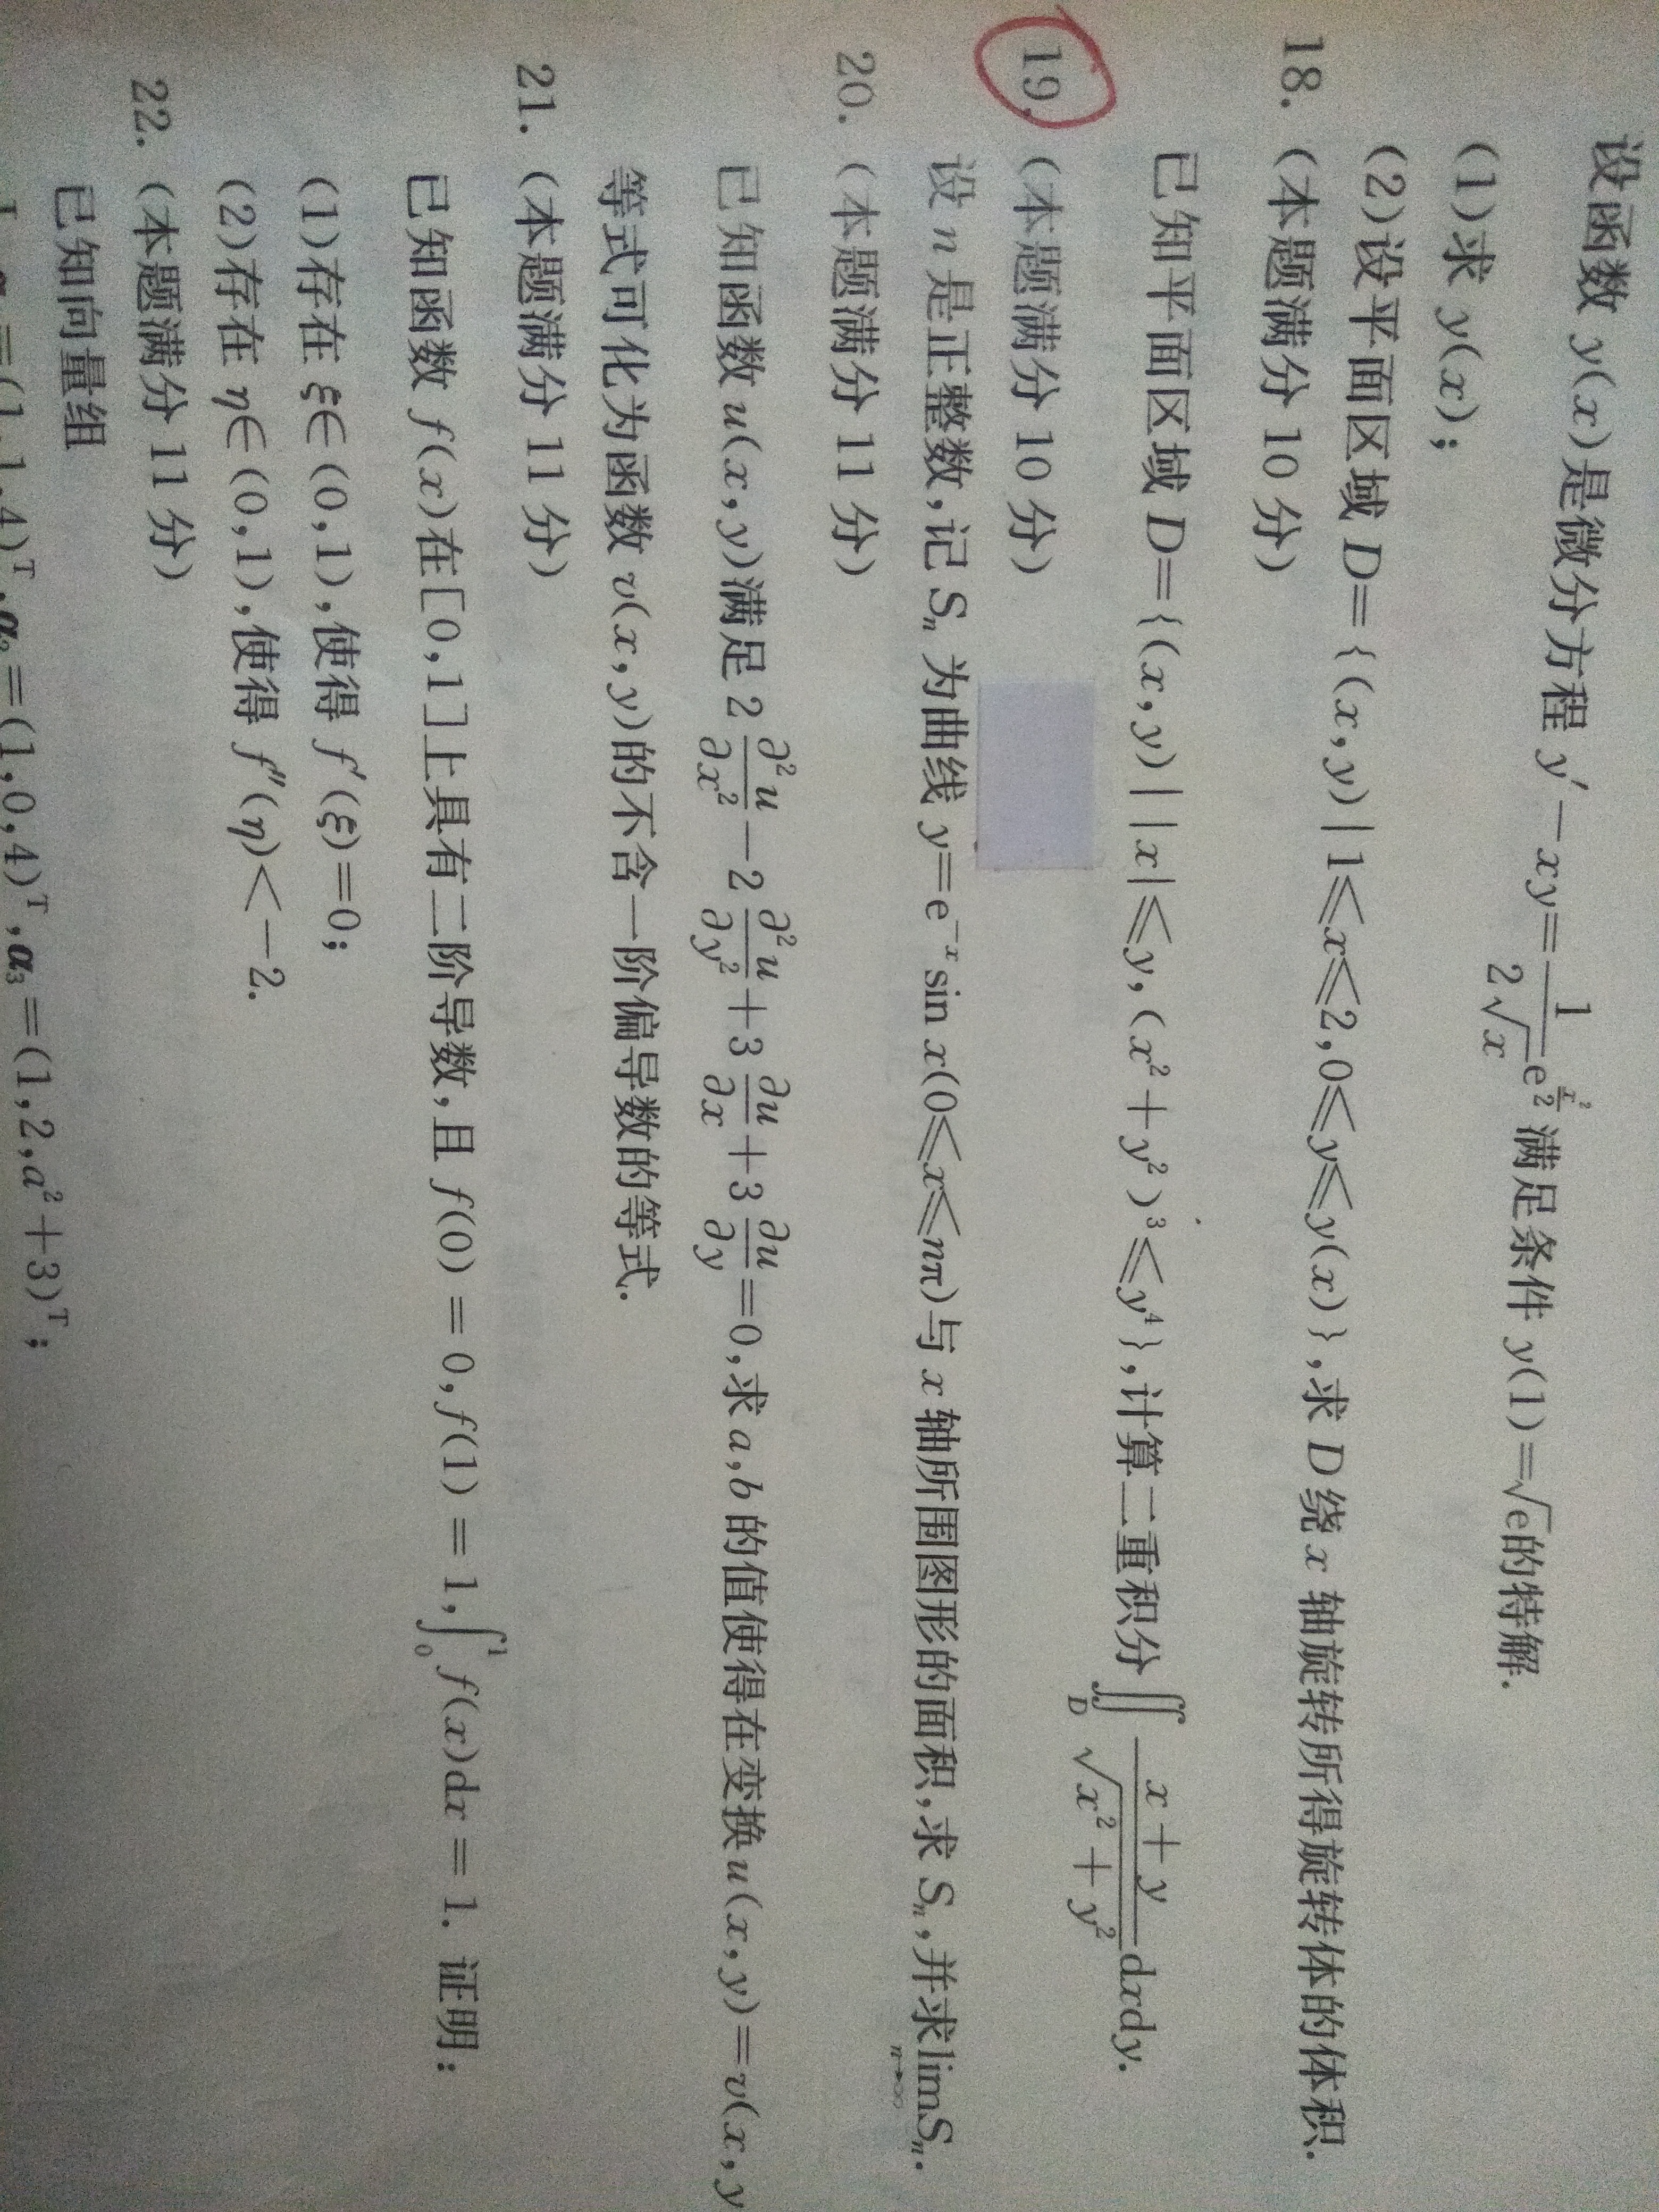 设函数 y(x)是微分方程 y′－xy＝\frac{1}{2\sqrt{x}}e^{\frac{x^2}{2}}满足条件 y(1)＝\sqrt{e}的特解.
(1)求 y(x);
(2)设平面区域 D＝{(x,y)|1≤x≤2,0≤y≤y(x)},求 D 绕 x 轴旋转所得旋转体的体积.
18. (本题满分 10 分)
已知平面区域 D＝{(x,y)||x|≤y,(x²＋y²)³≤y⁴},计算二重积分\iint_D \frac{x＋y}{\sqrt{x²＋y²}}dxdy.
19. (本题满分 10 分)
设 n 是正整数,记 Sₙ 为曲线 y＝e⁻ˣsin x(0≤x≤nπ)与 x 轴所围图形的面积,求 Sₙ,并求\lim_{n→∞}Sₙ.
20. (本题满分 11 分)
已知函数 u(x,y)满足 2\frac{∂²u}{∂x²}－2\frac{∂²u}{∂y²}＋3\frac{∂u}{∂x}＋3\frac{∂u}{∂y}＝0,求 a,b 的值使得在变换 u(x,y)＝v(x,y
等式可化为函数 v(x,y)的不含一阶偏导数的等式.
21. (本题满分 11 分)
已知函数 f(x)在[0,1]上具有二阶导数,且 f(0)＝0,f(1)＝1,\int_0^1 f(x)dx＝1. 证明:
(1)存在 ξ∈(0,1),使得 f′(ξ)＝0;
(2)存在 η∈(0,1),使得 f″(η)＜－2.
22. (本题满分 11 分)
已知向量组
＝(1,1,4)ᵀ,α₂＝(1,0,4)ᵀ,α₃＝(1,2,a²＋3)ᵀ;